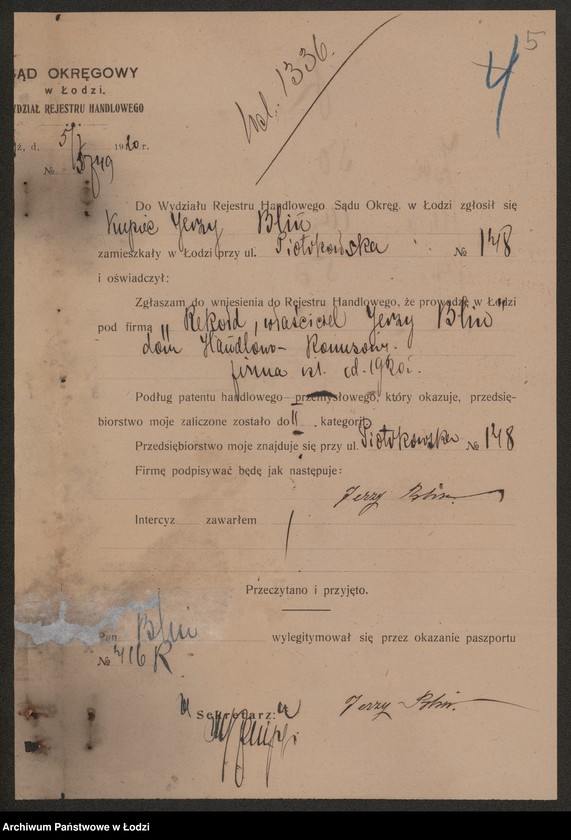 5
4
Wol. 1336.
SĄD OKRĘGOWY
w Łodzi.
WYDZIAŁ REJESTRU HANDLOWEGO
ź, d. 5/I 1920 r.
№
Do Wydziału Rejestru Handlowego Sądu Okręg. w Łodzi zgłosił się
Kupiec Jerzy Blin
zamieszkały w Łodzi przy ul. Piotrkowska № 148
i oświadczył:
Zgłaszam do wniesienia do Rejestru Handlowego, że prowadzę w Łodzi
pod firmą „Rekord, właściciel Jerzy Blin”
dom Handlowo-Komisowy.
firma ist. od 1920 r.
Podług patentu handlowego—przemysłowego, który okazuje, przedsię-
biorstwo moje zaliczone zostało do II kategorji.
Przedsiębiorstwo moje znajduje się przy ul. Piotrkowska № 148
Firmę podpisywać będę jak następuje:
Jerzy Blin.
Intercyz zawarłem
Przeczytano i przyjęto.
Pan Blin wylegitymował się przez okazanie paszportu
№ 416 R
Sekretarz:
Jerzy Blin.
Archiwum Państwowe w Łodzi